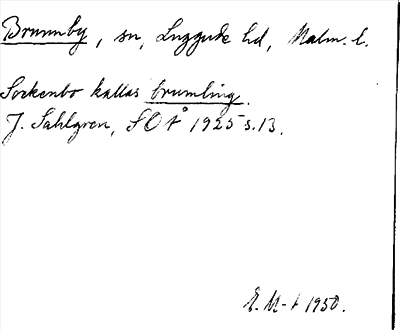 Brunnby, sn, Luggude hd, Malm. l.
Sockenbo kallas brumling.
J. Sahlgren, SOÅ 1925 s. 13.
E. M-t 1950.